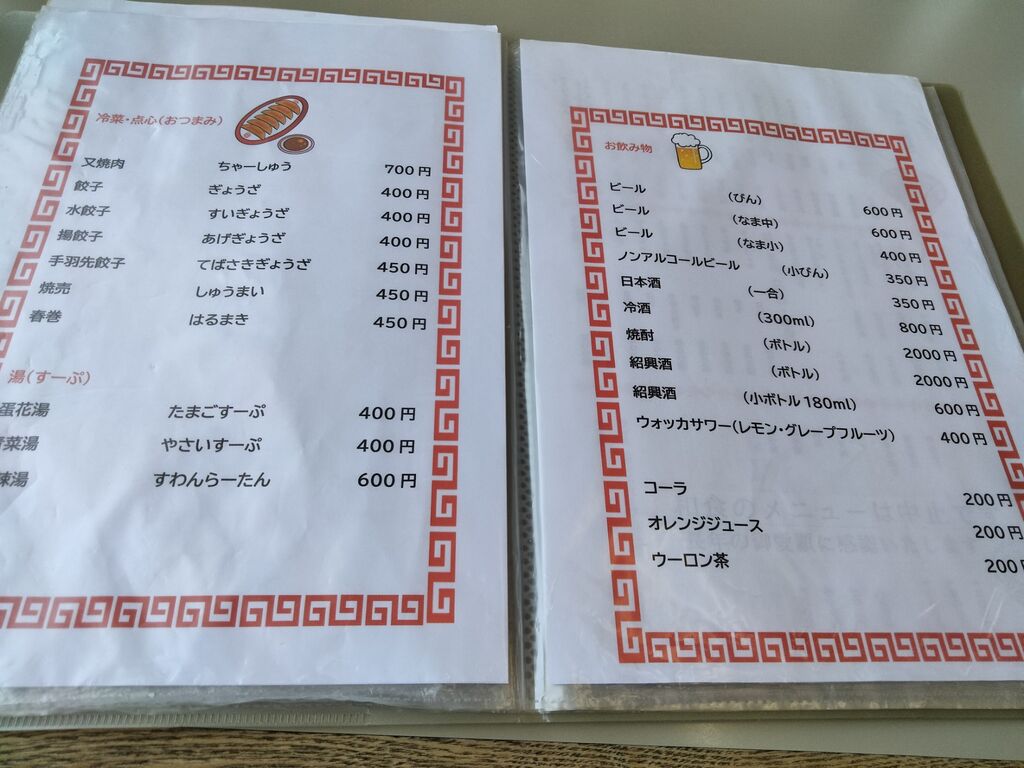 冷菜・点心(おつまみ)
叉焼肉 ちゃーしゅう 700円
餃子 ぎょうざ 400円
水餃子 すいぎょうざ 400円
揚餃子 あげぎょうざ 400円
手羽先餃子 てばさきぎょうざ 450円
焼売 しゅうまい 450円
春巻 はるまき 450円
湯(すーぷ)
蛋花湯 たまごすーぷ 400円
菜湯 やさいすーぷ 400円
辣湯 すわんらーたん 600円
お飲み物
ビール (びん) 600円
ビール (なま中) 600円
ビール (なま小) 400円
ノンアルコールビール (小びん) 350円
日本酒 (一合) 350円
冷酒 (300ml) 800円
焼酎 (ボトル) 2000円
紹興酒 (ボトル) 2000円
紹興酒 (小ボトル180ml) 600円
ウォッカサワー(レモン・グレープフルーツ) 400円
コーラ 200円
オレンジジュース 200円
ウーロン茶 200円